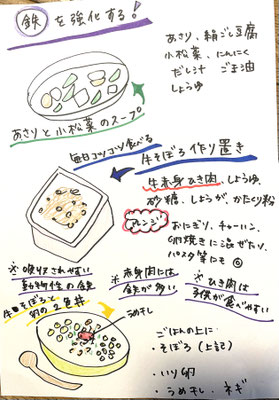 鉄を強化する!
あさり、絹ごし豆腐
小松菜、にんにく
だし汁 ごま油
しょうゆ
あさりと小松菜のスープ
毎日コツコツ食べる
牛そぼろ作り置き
牛赤身ひき肉、しょうゆ、
砂糖、しょうが、かたくり粉
アレンジ
おにぎり、チャーハン、
卵焼きに混ぜたり、
パスタ等にも◎
※吸収されやすい
動物性の鉄
※赤身肉には
鉄が多い
※ひき肉は
子供が食べやすい
牛そぼろと
卵の2色丼
うめ干し
ごはんの上に
・そぼろ(上記)
・いり卵
・うめ干し、ネギ